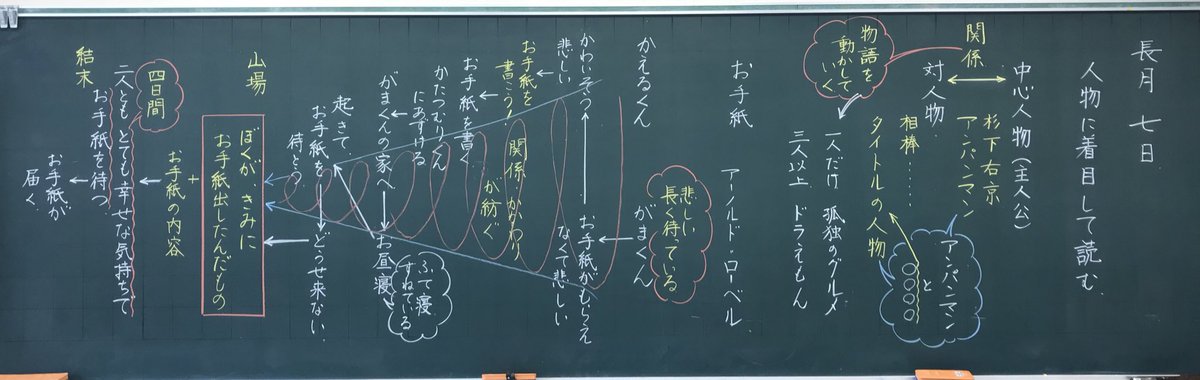 長月 七日
人物に着目して読む
中心人物(主人公)
関係
対人物
杉下右京
アンパンマン
相棒……
タイトルの人物
アンパンマン
と
○○○○
物語を
動かして
いく
一人だけ 孤独のグルメ
三人以上 ドラえもん
お手紙
アーノルド・ローベル
かえるくん
がまくん
悲しい
長く待っている
かわいそう
悲しい
お手紙がもらえ
なくて悲しい
お手紙を
書こう
関係 かかわり
が紡ぐ
お手紙を書く
かたつむりくん
にあずける
がまくんの家へ
お昼寝
ふて寝
すねている
起きて、
お手紙を
待とう
どうせ来ない
山場
ぼくが きみに
お手紙出したんだもの
+
お手紙の内容
結末
四日間
二人ともとても幸せな気持ちで
お手紙を待つ
お手紙が
届く